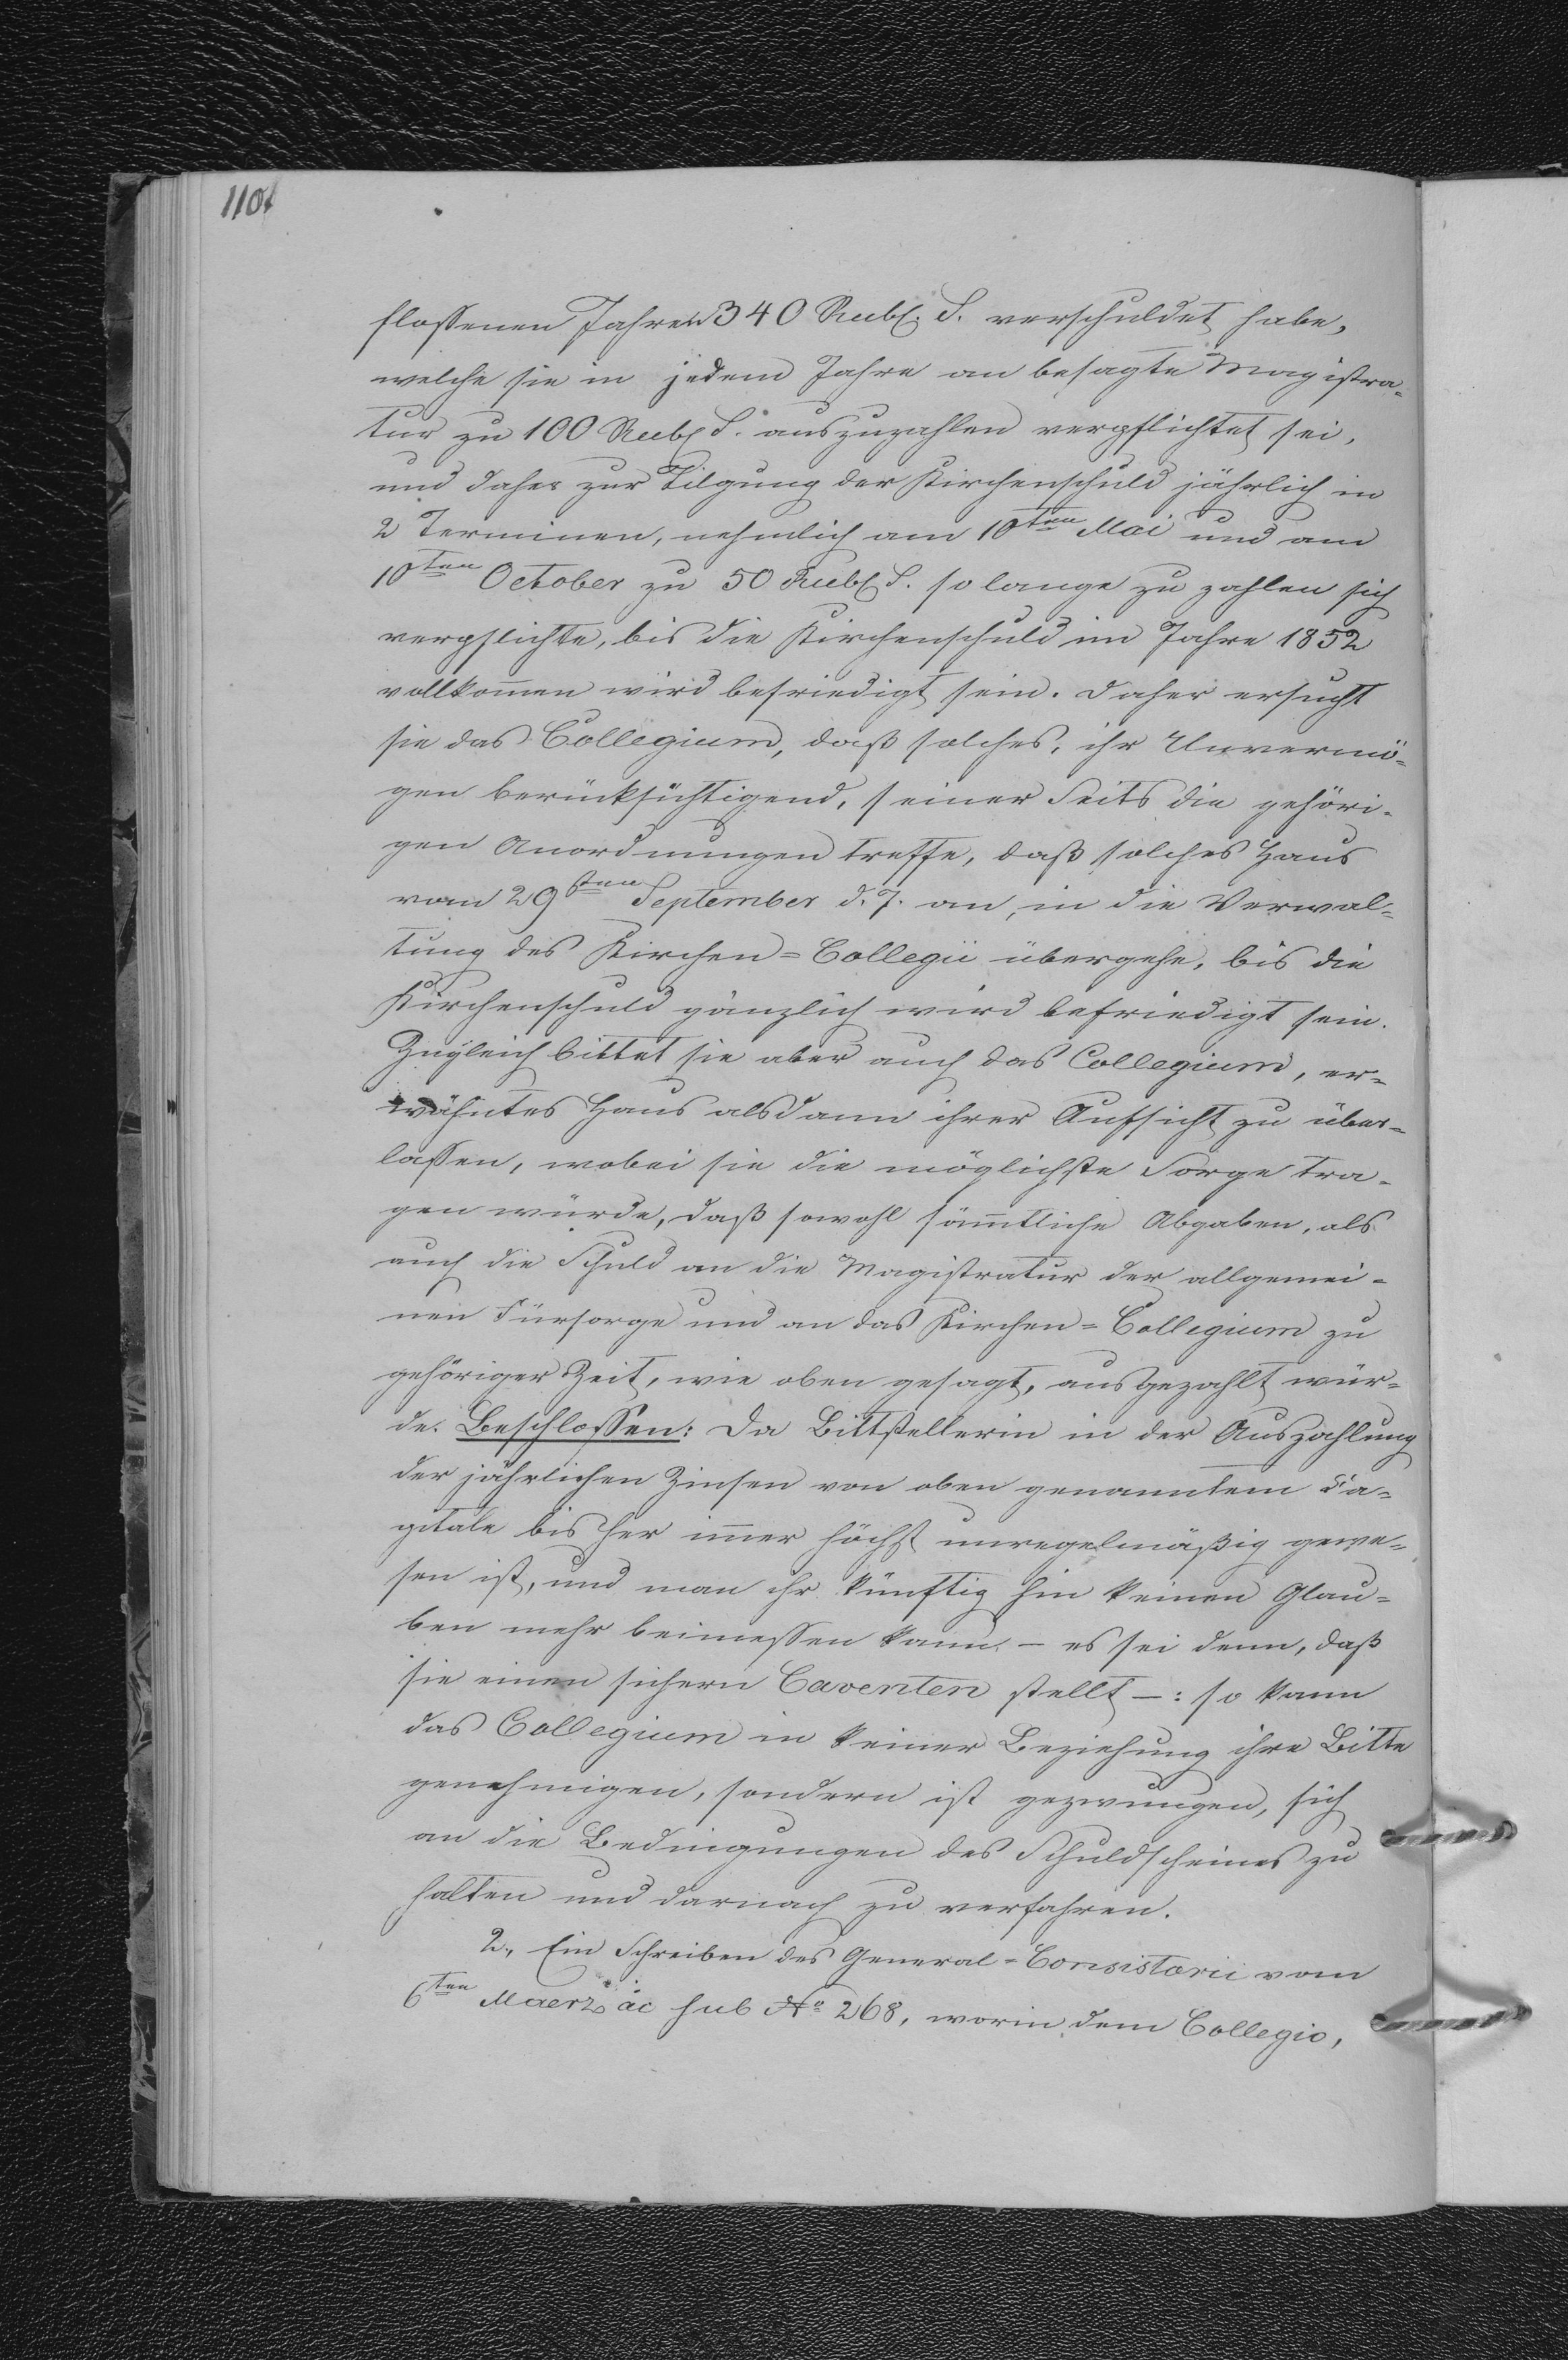 110
flossenen Jahren 340 Rubl. S. verschuldet habe,
welche sie in jedem Jahre an besagte Magistra-
tur zu 100 Rubl S. auszuzahlen verpflichtet sei,
und daher zur Tilgung der Kirchenschuld jährlich in
2 Terminen, nehmlich am 10ten Mai und am
10ten October zu 50 Rubl S. so lange zu zahlen sich
verpflichte, bis die Kirchenschuld im Jahre 1852
vollkom̄en wird befriedigt sein. Daher ersucht
sie das Collegium, daß solches, ihr Unvermö-
gen berücksichtigend, seiner Seits die gehöri-
gen Anordnungen treffe, daß solches Haus
vom 29sten September d. J. an, in die Verwal-
tung des Kirchen=Collegii übergehe, bis die
Kirchenschuld gänzlich wird befriedigt sein.
Zugleich bittet sie aber auch das Collegium, er-
wähntes Haus alsdann ihrer Aufsicht zu über-
lassen, wobei sie die möglichste Sorge tra-
gen würde, daß sowohl säm̄tliche Abgaben, als
auch die Schuld an die Magistratur der allgemei-
nen Fürsorge und an das Kirchen=Collegium zu
gehöriger Zeit, wie oben gesagt, ausgezahlt wür-
de. Beschlossen: Da Bittstellerin in der Auszahlung
der jährlichen Zinsen von oben genanntem Ca-
pitale bis her im̄er höchst unregelmäßig gewe-
sen ist, und man ihr künftig hin keinen Glau-
ben mehr beimessen kann – es sei denn, daß
sie einen sichern Caventen stellt –: so kann
das Collegium in keiner Beziehung ihre Bitte
genehmigen, sondern ist gezwungen, sich
an die Bedingungen des Schuldscheines zu
halten und darnach zu verfahren.
2., Ein Schreiben des General=Consistorii vom
6ten Maerz ac sub No 268, worin dem Collegio,